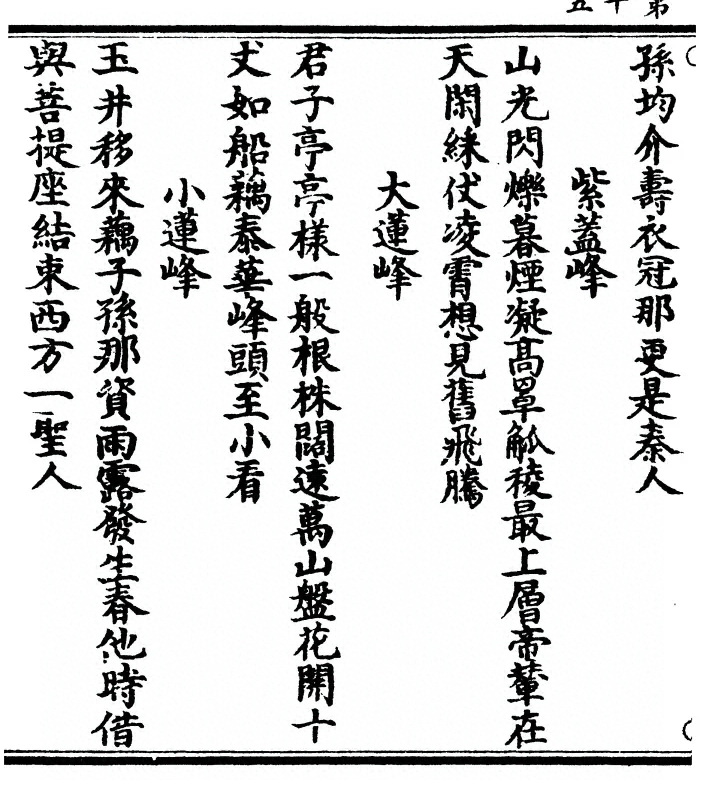 第十五
孫均介壽衣冠那更是秦人
紫蓋峰
山光閃爍暮煙凝高罩觚稜最上層帝輦在
天閑綵仗凌霄想見舊飛騰
大蓮峰
君子亭亭樣一般根株闊遠萬山盤花開十
丈如船藕泰華峰頭至小看
小蓮峰
玉井移來藕子孫那資雨露發生春他時借
與菩提座結束西方一聖人